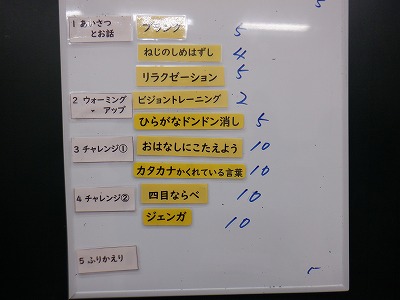 5
1 あいさつ とお話 プランク 5
ねじのしめはずし 4
リラクゼーション 5
2 ウォーミング・アップ ビジョントレーニング 2
ひらがなドンドン消し 5
3 チャレンジ① おはなしにこたえよう 10
カタカナかくれている言葉 10
4 チャレンジ② 四目ならべ 10
ジェンガ 10
5 ふりかえり
5